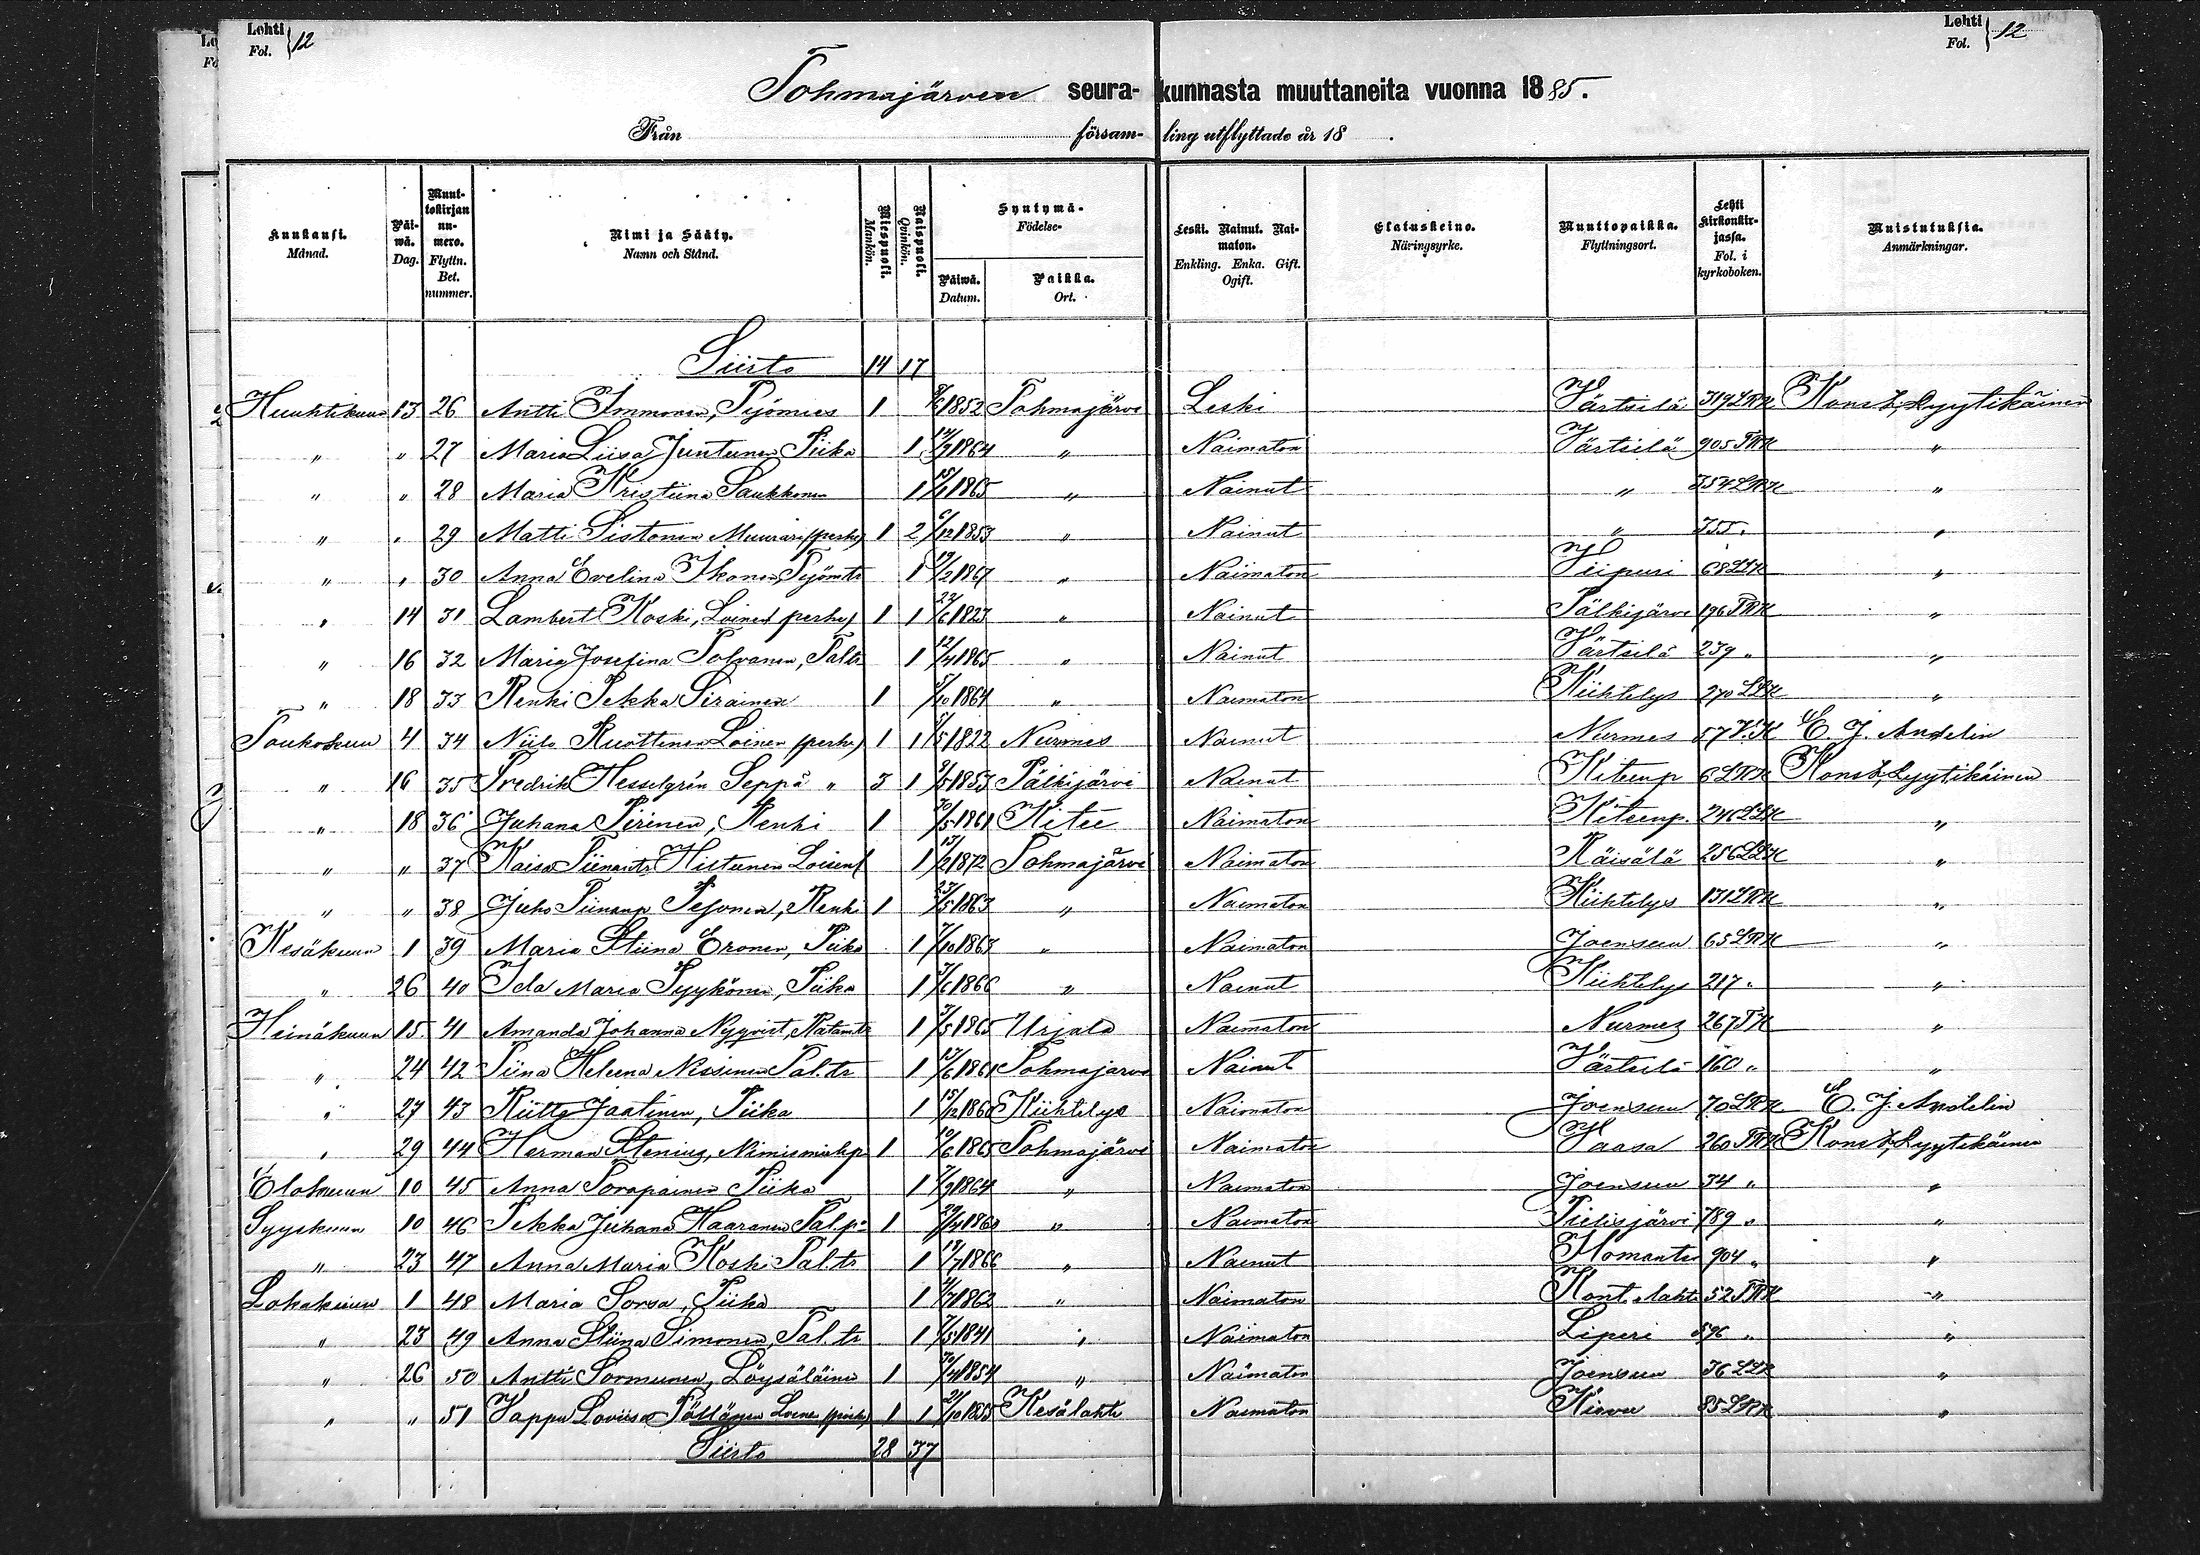 Lehti Fol. } 12
Lehti Fol. } 12
Tohmajärven seurakunnasta muuttaneita vuonna 1885.
Från församling utflyttade år 18 .
Kuukausi. Månad. | Päiwä. Dag. | Muuttokirjan numero. Flyttn. Bet. nummer. | Nimi ja Sääty. Namn och Stånd. | Miespuoli. Mankön. | Naispuoli. Qvinkön. | Syntymä- Födelse- Päiwä. Datum. | Paikka. Ort. | Leski. Nainut. Naimaton. Enkling. Enka. Gift. Ogift. | Elatuskeino. Näringsyrke. | Muuttopaikka. Flyttningsort. | Lehti kirkonkirjassa. Fol. i kyrkoboken. | Muistutuksia. Anmärkningar.
Siirto 14 17
Huuhtikuun 13 26 Antti Immonen, Työmies 1 1852 Tohmajärvi Leski Värtsilä 319 LRK Konst. Lyytikäinen
" " 27 Maria Liisa Juntunen Piika 1 1864 " Naimaton Värtsilä 905 TRK "
" " 28 Maria Kristiina Saukkonen 1 1865 " Nainut " 354 LRK "
" " 29 Matti Sistonen Muurari (perhe) 1 2 6/12 1853 " Nainut " 355 " "
" " 30 Anna Evelina Ikonen, Työmtr 1 19/2 1867 " Naimaton Viipuri 68 LLK "
" 14 31 Lambert Koski, Loinen (perhe) 1 1 23/6 1823 " Nainut Pälkijärvi 196 TRK "
" 16 32 Maria Josefina Tolvanen, Taltr 1 12/4 1865 " Nainut Värtsilä 239 " "
" 18 33 Renki Pekka Sirainen 1 5/10 1864 " Naimaton Kiihtelys 270 LLK "
Toukokuun 4 34 Niilo Ruottinen Loinen (perhe) 1 1 1822 Nurmes Nainut Nurmes 57 V.K E. J. Andelin
" 16 35 Fredrik Hesselgrén Seppä " 3 1 1853 Pälkijärvi Nainut Kiteenp 6 LRK Konst. Lyytikäinen
" 18 36 Juhana Pirinen, Renki 1 30/5 1861 Kitee Naimaton Kiteenp. 246 LLK "
" " 37 Kaisa Tiinantr Hiltunen Loisent 1 13/2 1872 Tohmajärvi Naimaton Räisälä 256 LLK "
" " 38 Juho Tiinanp Pesonen, Renki 1 23/5 1863 " Naimaton Kiihtelys 131 LRK "
Kesäkuun 1 39 Maria Stiina Eronen, Piika 1 7/10 1863 " Naimaton Joensuu 65 LRK "
" 26 40 Ida Maria Pyykönen, Piika 1 1866 " Nainut Kiihtelys 217 " "
Heinäkuun 15 41 Amanda Johanna Nyqvist, 1 1865 Urjala Naimaton Nurmes 267 TK "
" 24 42 Tiina Heleena Nissinen Tal.tr 1 13/6 1861 Tohmajärvi Nainut Värtsilä 160 " "
" 27 43 Riitta Jaatinen, Piika 1 15/12 Kiihtelys Naimaton Joensuu 70 LRK E. J. Andelin
" 29 44 Herman Stenius, Nimismiehp 1 10/6 1865 Tohmajärvi Naimaton Vaasa 260 TRK Konst. Lyytikäinen
Elokuun 10 45 Anna Sorapainen Piika 1 7/9 1864 " Naimaton Joensuu 34 " "
Syyskuun 10 46 Pekka Juhana Haaranen Tal.p. 1 " Naimaton Pielisjärvi 789 " "
" 23 47 Anna Maria Koski Tal.tr 1 13/7 1866 " Nainut Ilomantsi 904 " "
Lokakuun 1 48 Maria Sorsa, Piika 1 1862 " Naimaton Kont.lahti 52 TRK "
" 23 49 Anna Stiina Simonen, Tal.tr 1 7/5 1841 " Naimaton Liperi 596 " "
" 26 50 Antti Sormunen, Löysäläinen 1 30/4 1854 " Naimaton Joensuu 36 LLK "
" " 51 Vappu Loviisa Pällänen Loinen (perhe) 1 1 Kesälahti Naimaton 85 LRK "
Siirto 28 37